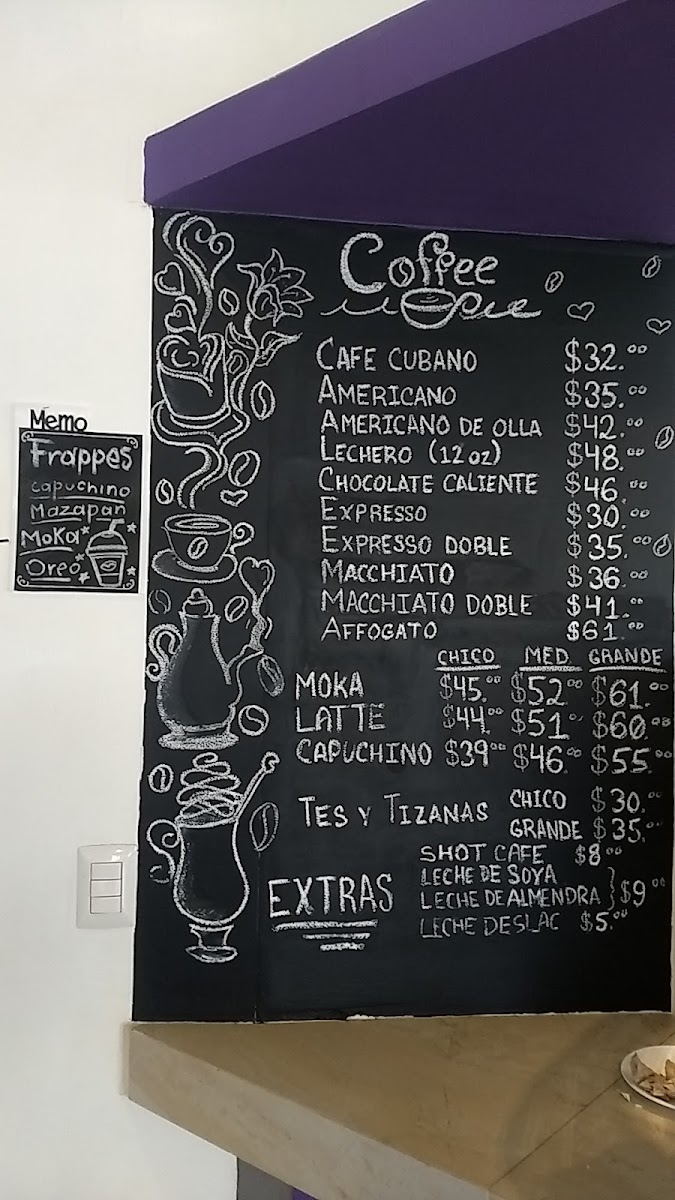 Coffee
CAFE CUBANO $32.00
AMERICANO $35.00
AMERICANO DE OLLA $42.00
LECHERO (12 oz) $48.00
CHOCOLATE CALIENTE $46.00
EXPRESSO $30.00
EXPRESSO DOBLE $35.00
MACCHIATO $36.00
MACCHIATO DOBLE $41.00
AFFOGATO $61.00
CHICO MED. GRANDE
MOKA $45.00 $52.00 $61.00
LATTE $44.00 $51.00 $60.00
CAPUCHINO $39.00 $46.00 $55.00
TES Y TIZANAS CHICO $30.00
GRANDE $35.00
EXTRAS
SHOT CAFE $8.00
LECHE DE SOYA
LECHE DE ALMENDRA $9.00
LECHE DESLAC $5.00
Memo
Frappes
Capuchino
Mazapan
Moka
Oreo